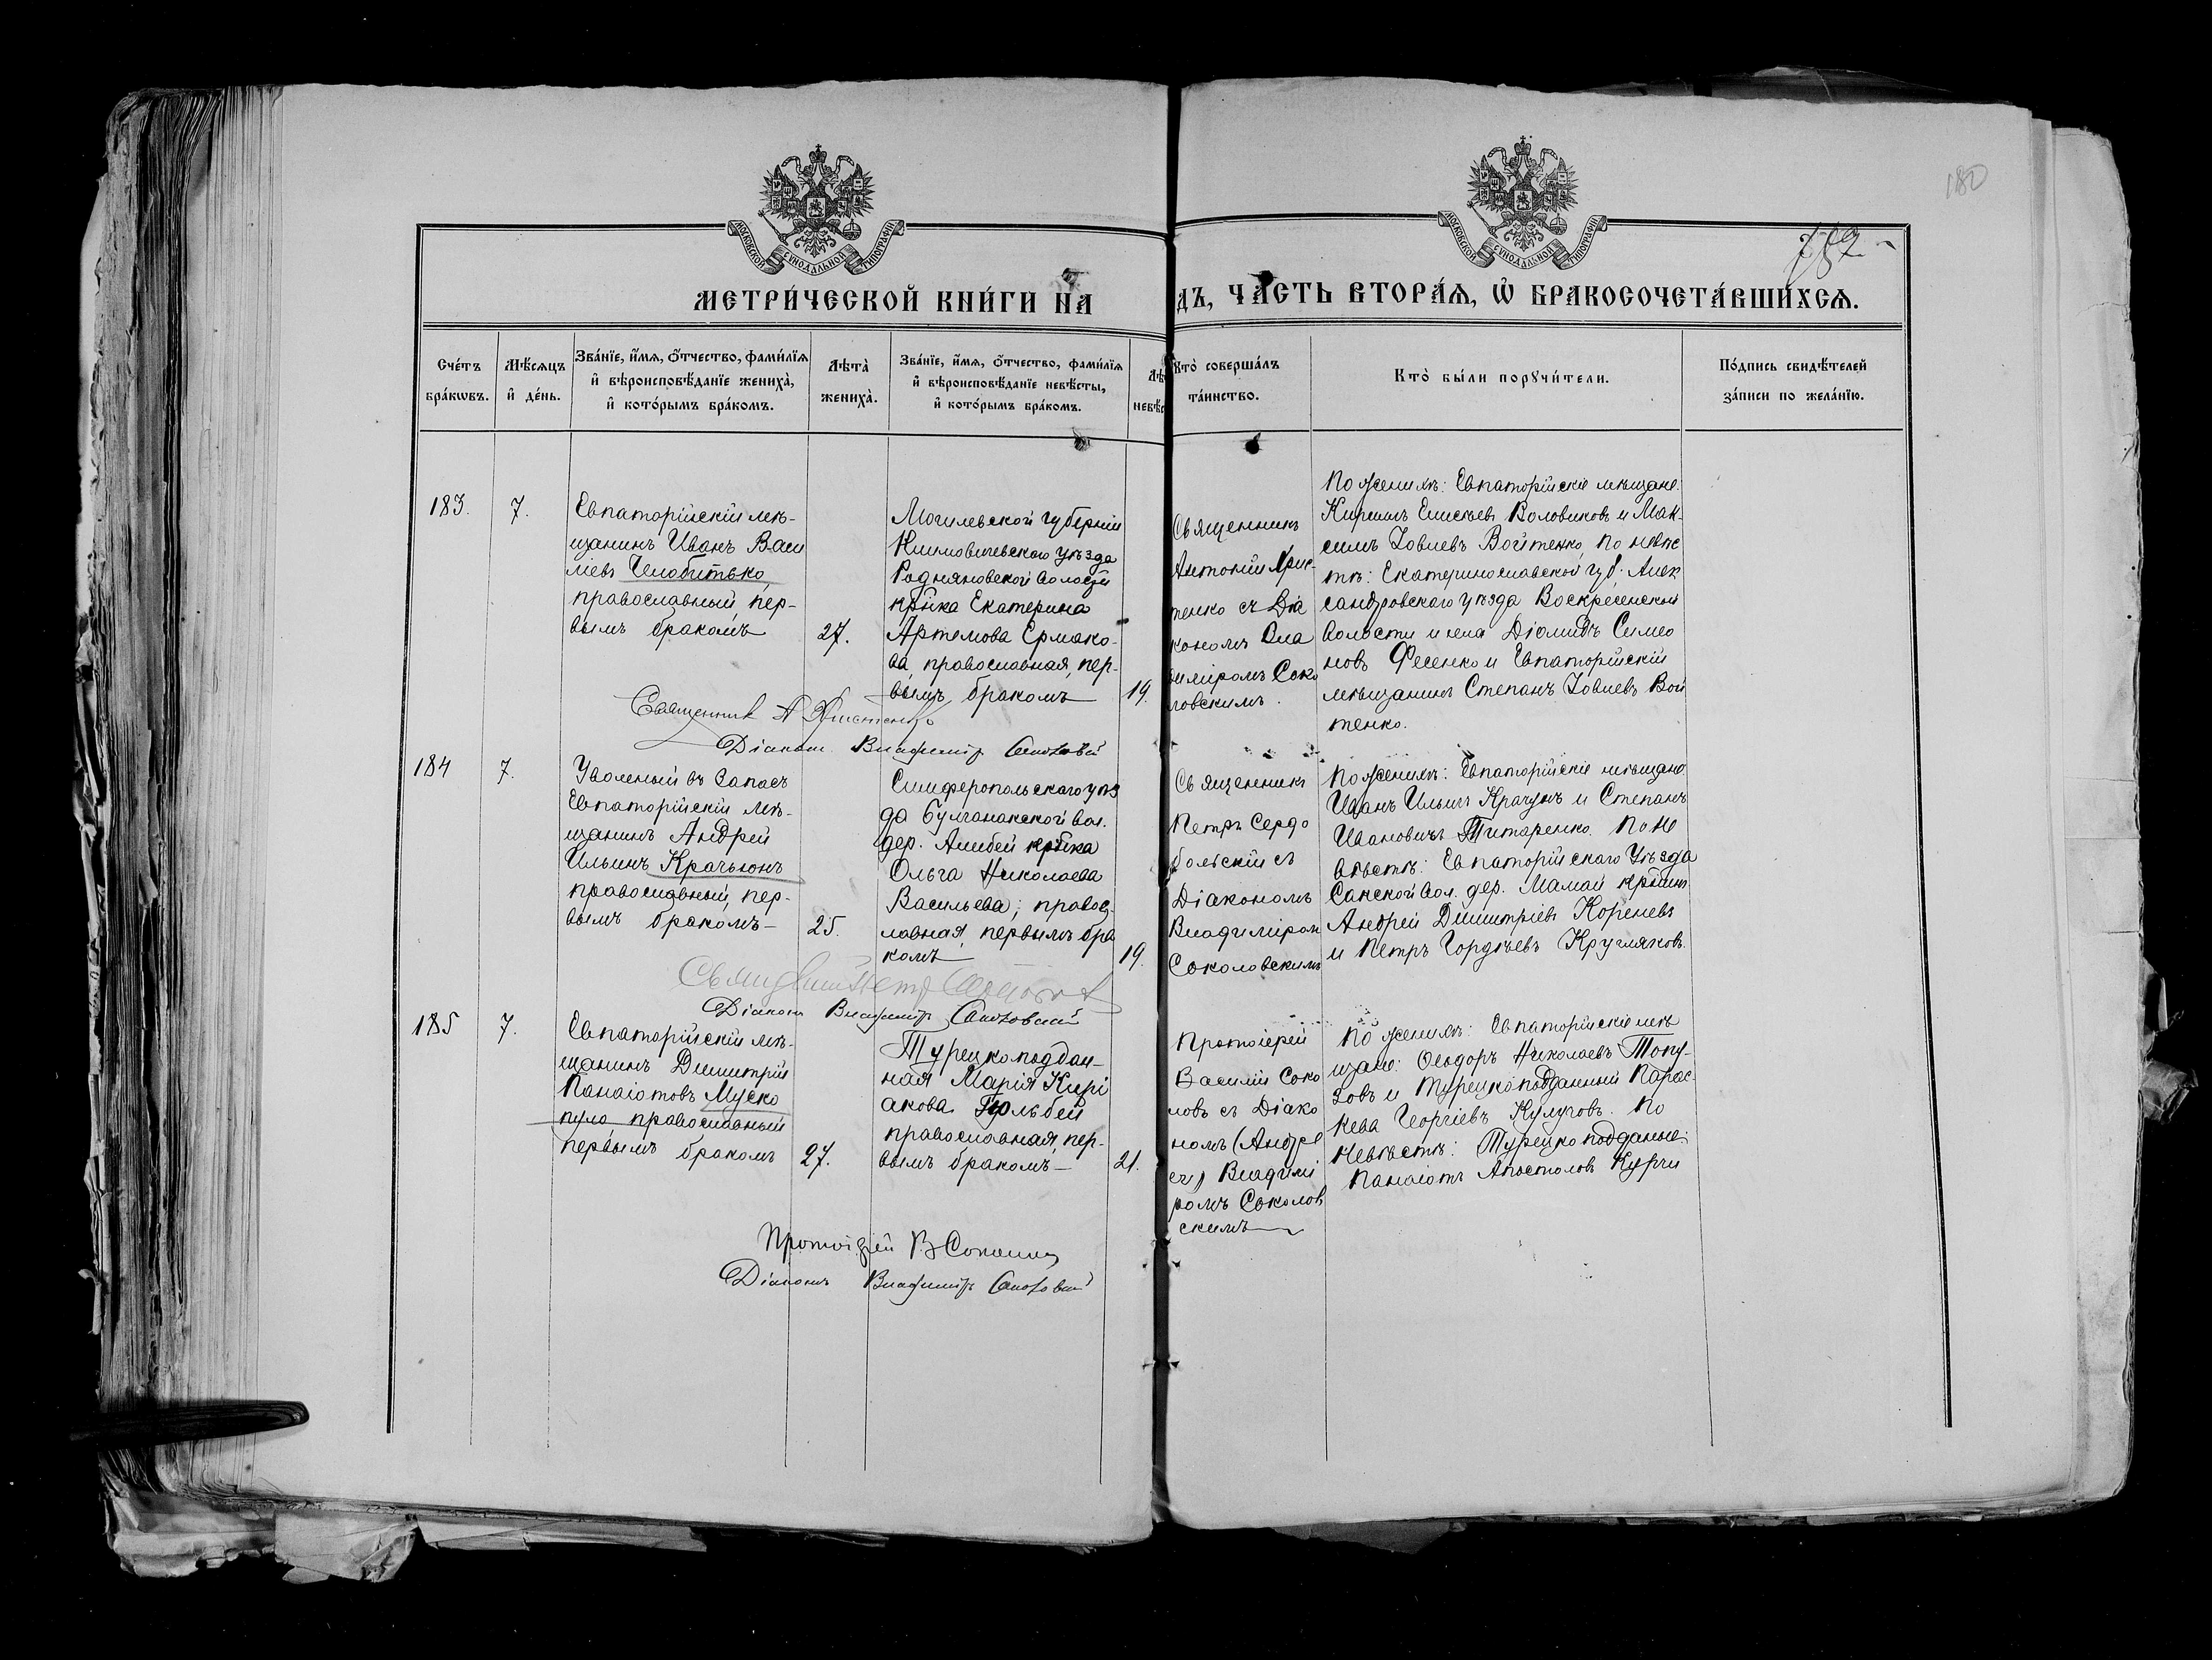 180
782
МОСКОВСКОЙ СѴНОДАЛЬНОЙ ТИПОГРАФІИ
МОСКОВСКОЙ СѴНОДАЛЬНОЙ ТИПОГРАФІИ
МЕТРИ́ЧЕСКОЙ КНИ́ГИ НА
ДЪ, ЧА́СТЬ ВТОРА́Ѧ, Ѡ҆ БРАКОСОЧЕТА́ВШИХСѦ.
Сче́тъ
бра́кѡвъ.
Мѣ́сѧцъ
и҆ де́нь.
Зва́нїе, и҆́мѧ, ѻ҆́тчество, фами́лїѧ
и҆ вѣроисповѣ́данїе жениха̀,
и҆ кото́рымъ бра́комъ.
Лѣта̀
жениха̀.
Зва́нїе, и҆́мѧ, ѻ҆́тчество, фами́лїѧ
и҆ вѣроисповѣ́данїе невѣ́сты,
и҆ кото́рымъ бра́комъ.
Лѣ
невѣс
Кто̀ соверша́лъ
та́инство.
Кто̀ бы́ли порꙋчи́тели.
По́дпись свидѣ́телей
за́писи по жела́нїю.
183.
7.
Евпаторійскій мѣ-
щанинъ Иванъ Васи
льевъ Челобитько,
православный, пер-
вымъ бракомъ
27.
Могилевской губерніи
Климовичевскаго уѣзда
Родняновской волости
кр̃нка Екатерина
Артемова Ермако-
ва, православная, пер-
вымъ бракомъ
19.
Священникъ
Антоній Хрис-
тенко съ Діа
кономъ Вла
диміромъ Соко
ловскимъ.
По женихѣ: Евпаторійскіе мѣщане:
Кириллъ Елисѣевъ Воловиковъ и Мак-
симъ Іовлевъ Войтенко, по невѣс
тѣ: Екатеринославской губ. Алек
сандровскаго уѣзда Воскресенской
волости и села Діомидъ Симео
новъ Фесенко и Евпаторійскій
мѣщанинъ Степанъ Іовлевъ Вой
тенко.
Священник А Христенко
Діаконъ Владиміръ Соколовскій
184
7.
Уволеный въ запасъ
Евпаторійскій мѣ-
щанинъ Андрей
Ильинъ Крачьюнъ
православный, пер-
вымъ бракомъ
25.
Симферопольскаго уѣз
да Булганакской вол.
дер. Ашибей кр̃нка
Ольга Николаева
Васильева; правос-
лавная, первымъ бра
комъ
19.
Священникъ
Петръ Сердо
больскій съ
Діакономъ
Владиміром
Соколовскимъ
По женихѣ: Евпаторійскіе мѣщане:
Иванъ Ильичъ Крачунъ и Степанъ
Ивановичъ Титаренко. По не
вѣстѣ: Евпаторійскаго Уѣзда
Сакской вол. дер. Мамай кр̃нинъ
Андрей Димитріевъ Кореневъ
и Петръ Гордѣевъ Кругляковъ.
Діаконъ Владиміръ Соколовскій
185
7.
Евпаторійскій мѣ-
щанинъ Димитрій
Панаіотовъ Муско
пуло, православный
первымъ бракомъ
27.
Турецкоподдан-
ная Марія Кирі
акова Гюльбей
православная, пер-
вымъ бракомъ
21.
Протоіерей
Василій Соко
ловъ съ Діако
номъ (Андре
ечъ) Владимі
ромъ Соколов
скимъ
По женихѣ: Евпаторійскіе мѣ
щане: Ѳеодоръ Николаевъ Топу-
зовъ и турецкоподданный Парас-
кева Георгіевъ Кулуговъ. По
невѣстѣ: Турецкоподданые:
Панаіотъ Апостоловъ Курчи
Протоіерей В Соколовъ
Діаконъ Владиміръ Соколовскій